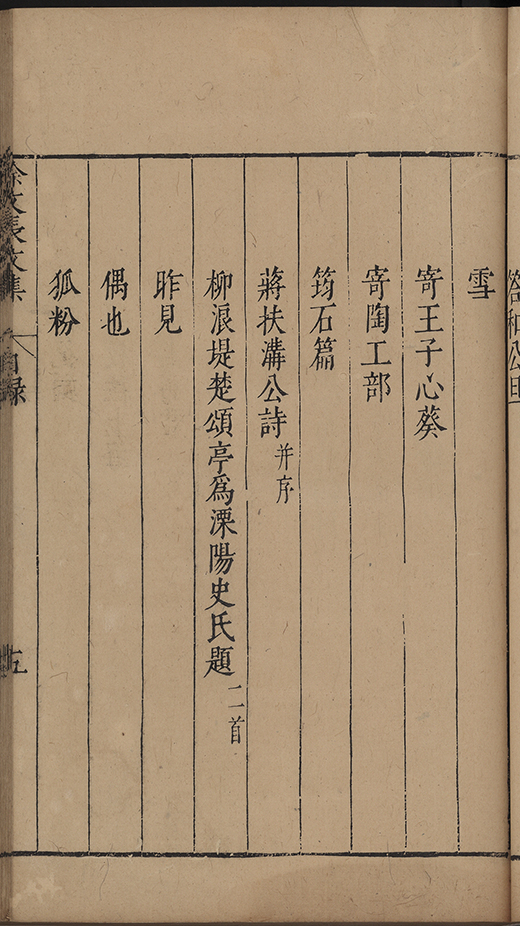 雪
寄王子心葵
寄陶工部
筠石篇
蔣扶溝公詩并序
柳浪堤楚頌亭爲溧陽史氏題二首
昨見
偶也
狐粉
徐文長文集 目録